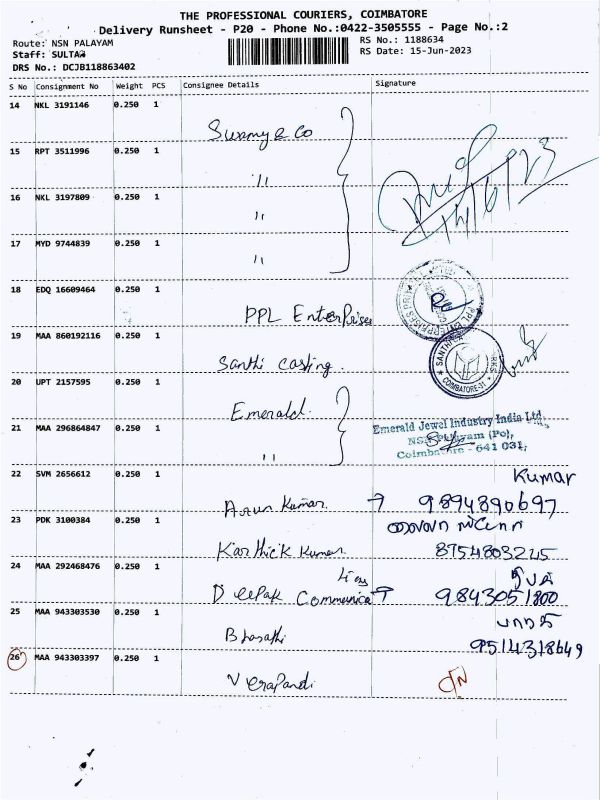 THE PROFESSIONAL COURIERS, COIMBATORE
Delivery Runsheet - P20 - Phone No.:0422-3505555 - Page No.:2
Route: NSN PALAYAM
RS No.: 1188634
Staff: SULTAJ
RS Date: 15-Jun-2023
DRS No.: DCJB118863402
S No Consignment No Weight PCS Consignee Details Signature
14 NKL 3191146 0.250 1 Swamy & Co
15 RPT 3511996 0.250 1 "
16 NKL 3197809 0.250 1 "
17 MYD 9744839 0.250 1 "
18 EDQ 16609464 0.250 1 PPL Enterprises
19 MAA 860192116 0.250 1 Santhi Casting.
COIMBATORE-31
20 UPT 2157595 0.250 1 Emerald.
Emerald Jewel Industry India Ltd.,
21 MAA 296864847 0.250 1 "
Coimbatore - 641 031.
22 SVM 2656612 0.250 1 Arun Kumar
Kumar
9894890697
23 PDK 3100384 0.250 1 Karthick Kumar
8754803245
24 MAA 292468476 0.250 1 Deepak Communica
tions
9843051800
25 MAA 943303530 0.250 1 Bharathi
9514318649
26 MAA 943303397 0.250 1 Verapandi